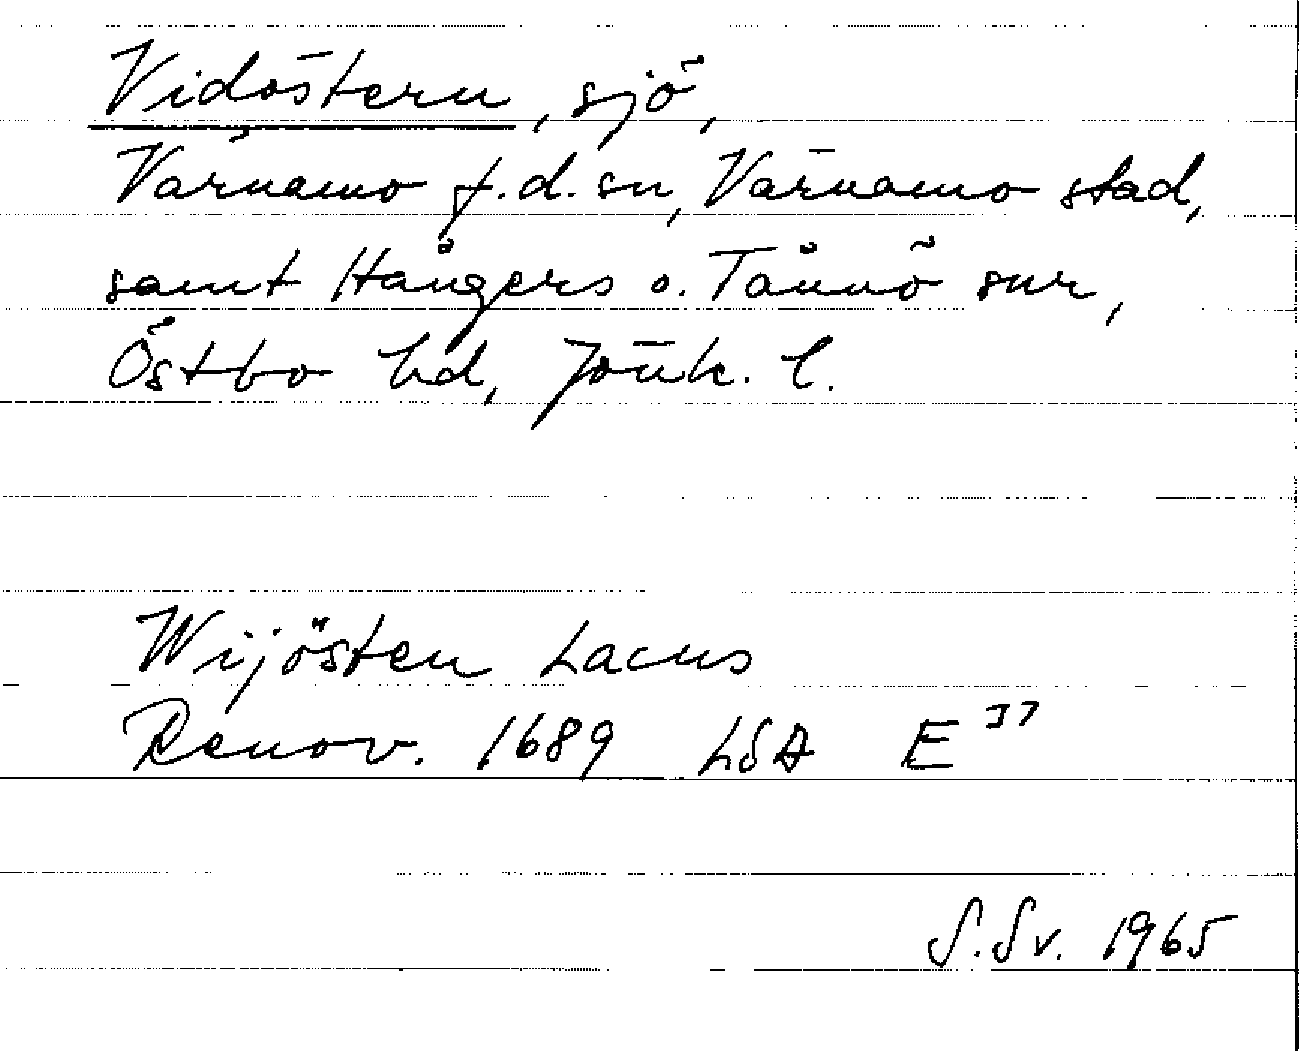 Vidöstern, sjö,
Värnamo f.d. sn, Värnamo stad,
samt Hångers o. Tånnö snr,
Östbo hd, Jönk. l.
Wijösten Lacus
Renov. 1689 LSA E³⁷
S.Sv. 1965